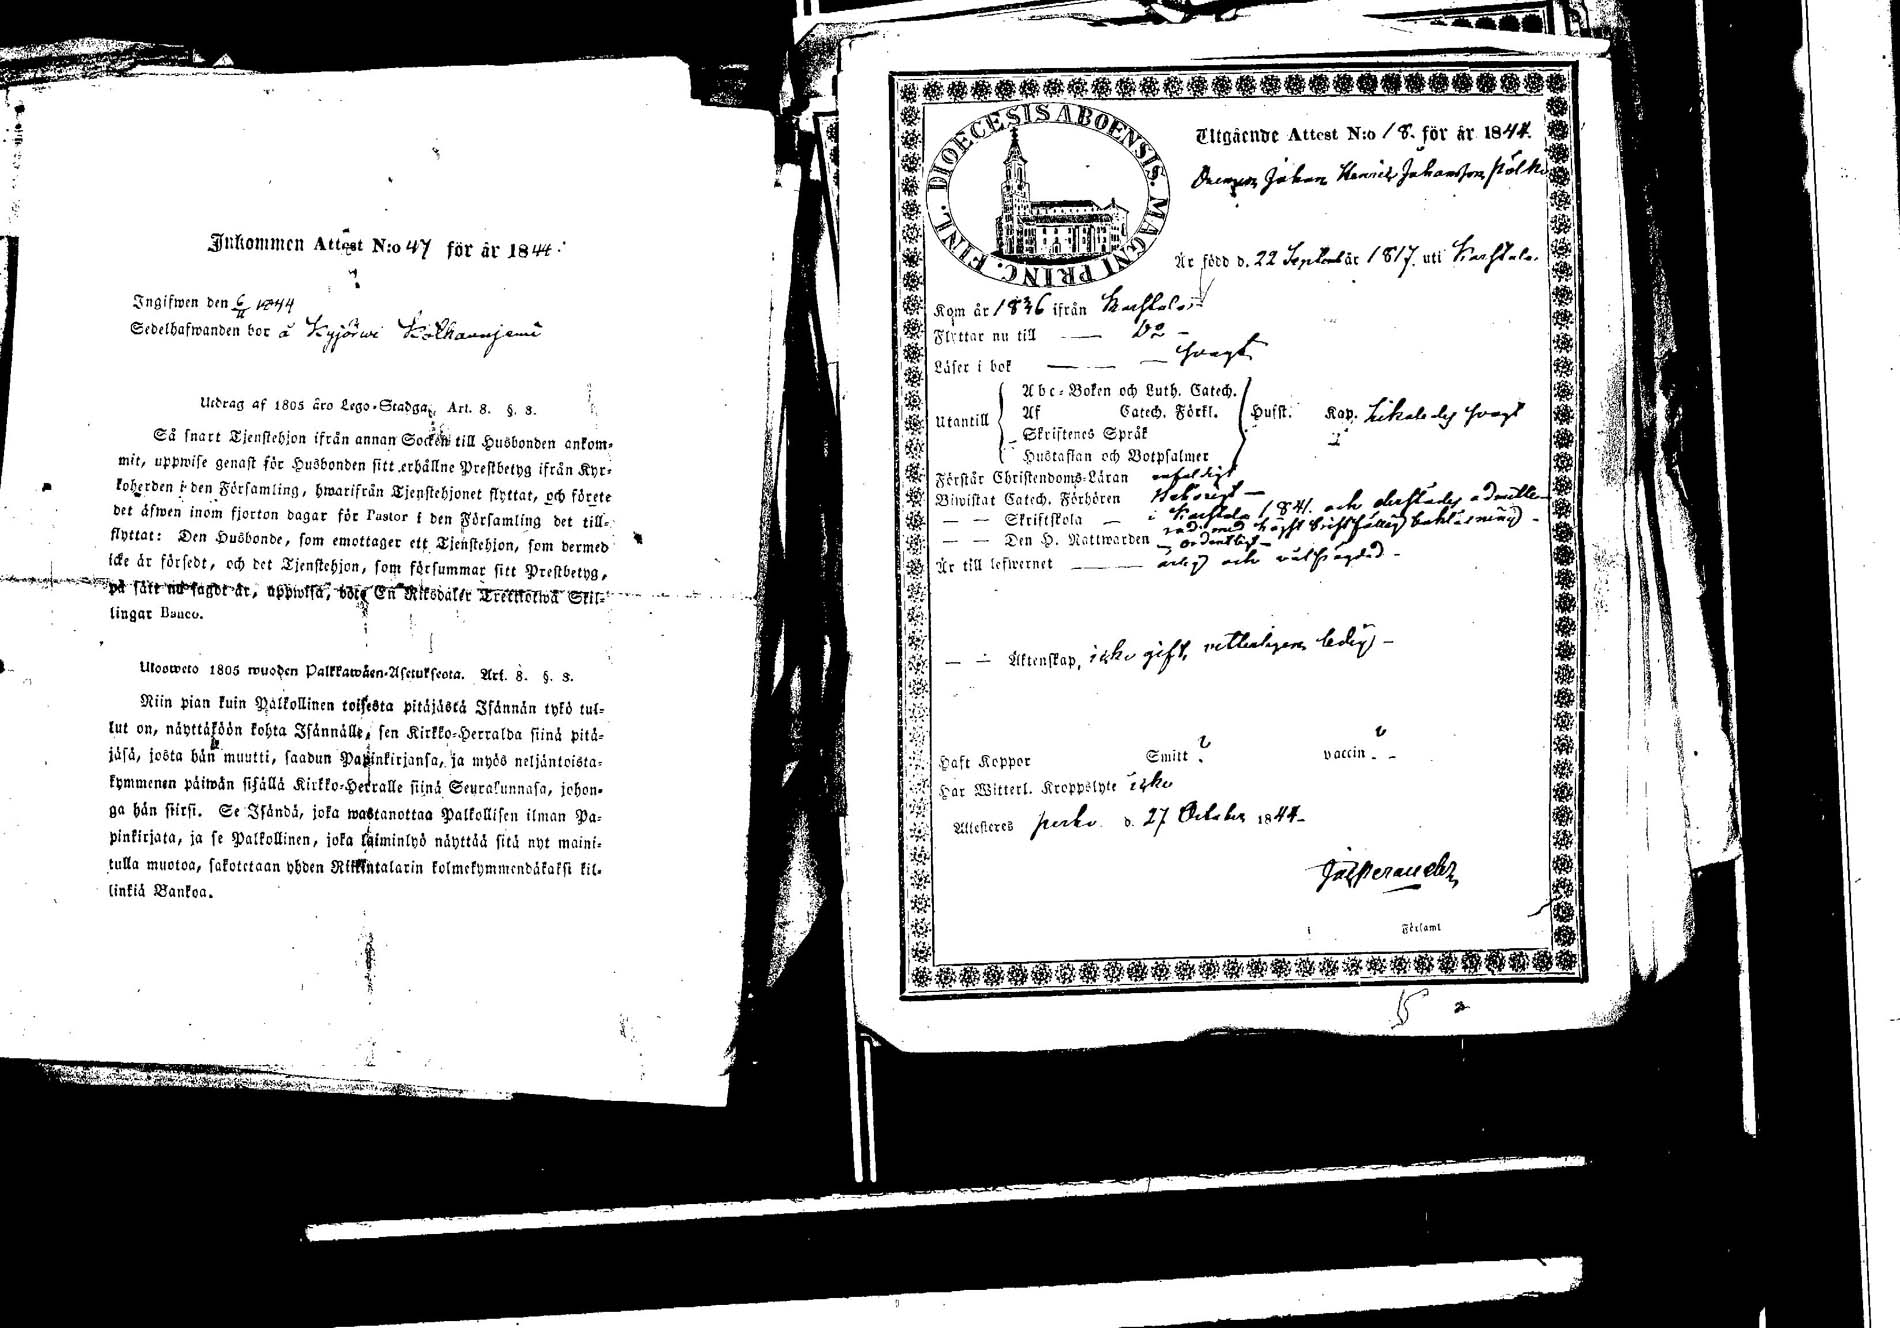 Inkommen Attest N:o 47 för år 1844.
Ingifwen den 6/11 1844
Sedelhafwanden bor å Kyjärwi Kolkannjemi
Utdrag af 1805 års Lego-Stadga, Art. 8. §. 3.
Så snart Tjenstehjon ifrån annan Socken till Husbonden ankom-
mit, uppwise genast för Husbonden sitt erhållne Prestbetyg ifrån Kyr-
koherden i den Församling, hwarifrån Tjenstehjonet flyttat, och förete
det äfwen inom fjorton dagar för Pastor i den Församling det till-
flyttat: Den Husbonde, som emottager ett Tjenstehjon, som dermed
icke är försedt, och det Tjenstehjon, som försummar sitt Prestbetyg,
på sätt nu sagdt är, uppwisa, böte En Riksdaler Trettiotwå Skil-
lingar Banco.
Ulosweto 1805 wuoden Palkkawäen-Asetuksesta. Art. 8. §. 3.
Niin pian kuin Palkollinen toisesta pitäjästä Isännän tykö tul-
lut on, näyttäköön kohta Isännälle, sen Kirkko-Herralda siinä pitä-
jäsä, josta hän muutti, saadun Papinkirjansa, ja myös neljäntoista-
kymmenen päiwän sisällä Kirkko-Herralle siinä Seurakunnasa, johon-
ga hän siirsi. Se Isändä, joka wastanottaa Palkollisen ilman Pa-
pinkirjata, ja se Palkollinen, joka laiminlyö näyttää sitä nyt maini-
tulla muotoa, sakotetaan yhden Riksintalarin kolmekymmendäkaksi kil-
linkiä Bankoa.
DIOECESIS ABOENSIS. MAGNI PRINC. FINL.
Utgående Attest N:o 18. för år 1844.
Drengen Johan Henrich Johansson Pölki
Är född d. 22 September år 1817. uti Karstula.
Kom år 1836 ifrån Karstula
Flyttar nu till
Läser i bok — — — svagt
Utantill
Abc-Boken och Luth. Catech.
Af Catech. Förkl. Husst. Kap. likaledes svagt
Skriftenes Språk
Hustaflan och Botpsalmer
Förstår Christendoms-Läran enfaldigt
Biwistat Catech. Förhören
— — Skriftskola — i Karstula 1841. och derstädes admitte-
rad med
— — Den H. Nattwarden — ordentligt —
Är till lefwernet ärlig och välfrägdad —
— — Äktenskap, icke gift, vetterligen ledig —
Haft Koppor Smitt ? vaccin ?
Har Witterl. Kroppslyte icke
Attesteres Perho d. 27 October 1844
Församl